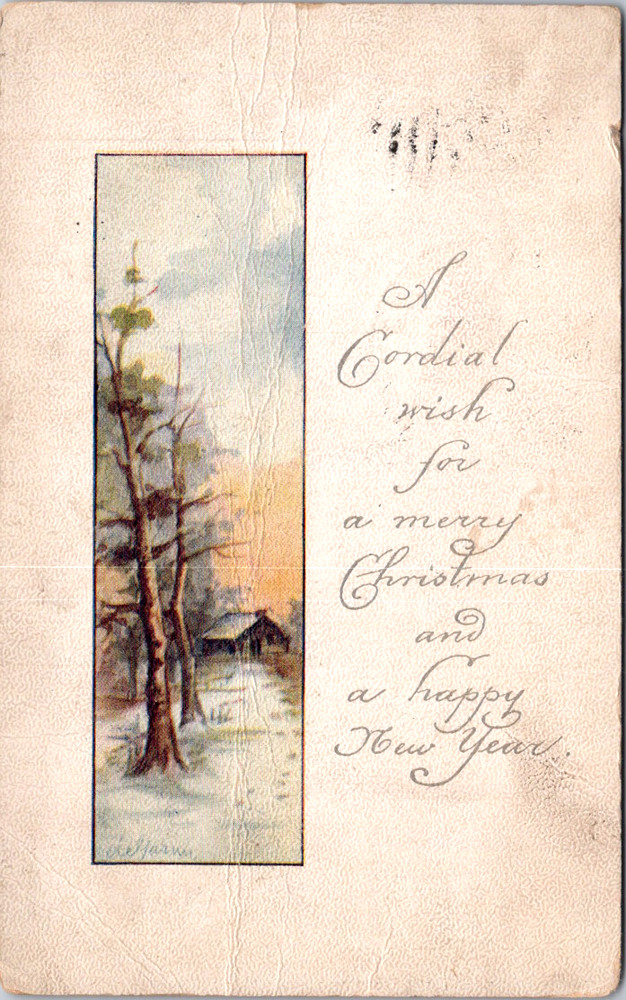 A
Cordial
wish
for
a merry
Christmas
and
a happy
New Year.